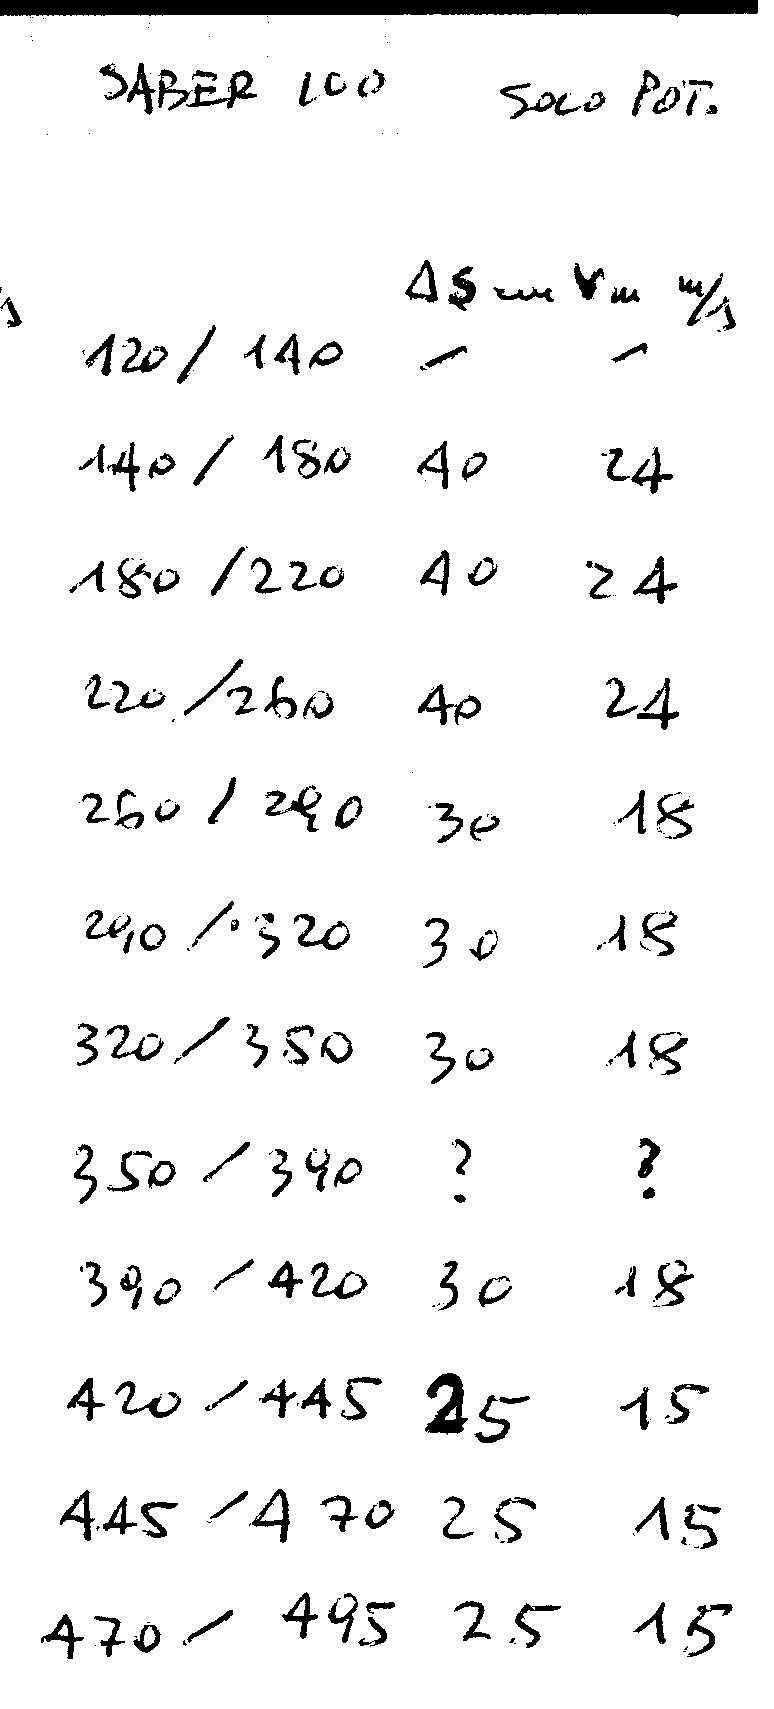 SABER 100 SOLO POT.
ΔS mm Vm m/s
120/140 - -
140/180 40 24
180/220 40 24
220/260 40 24
260/290 30 18
290/320 30 18
320/350 30 18
350/390 ? ?
390/420 30 18
420/445 25 15
445/470 25 15
470/495 25 15